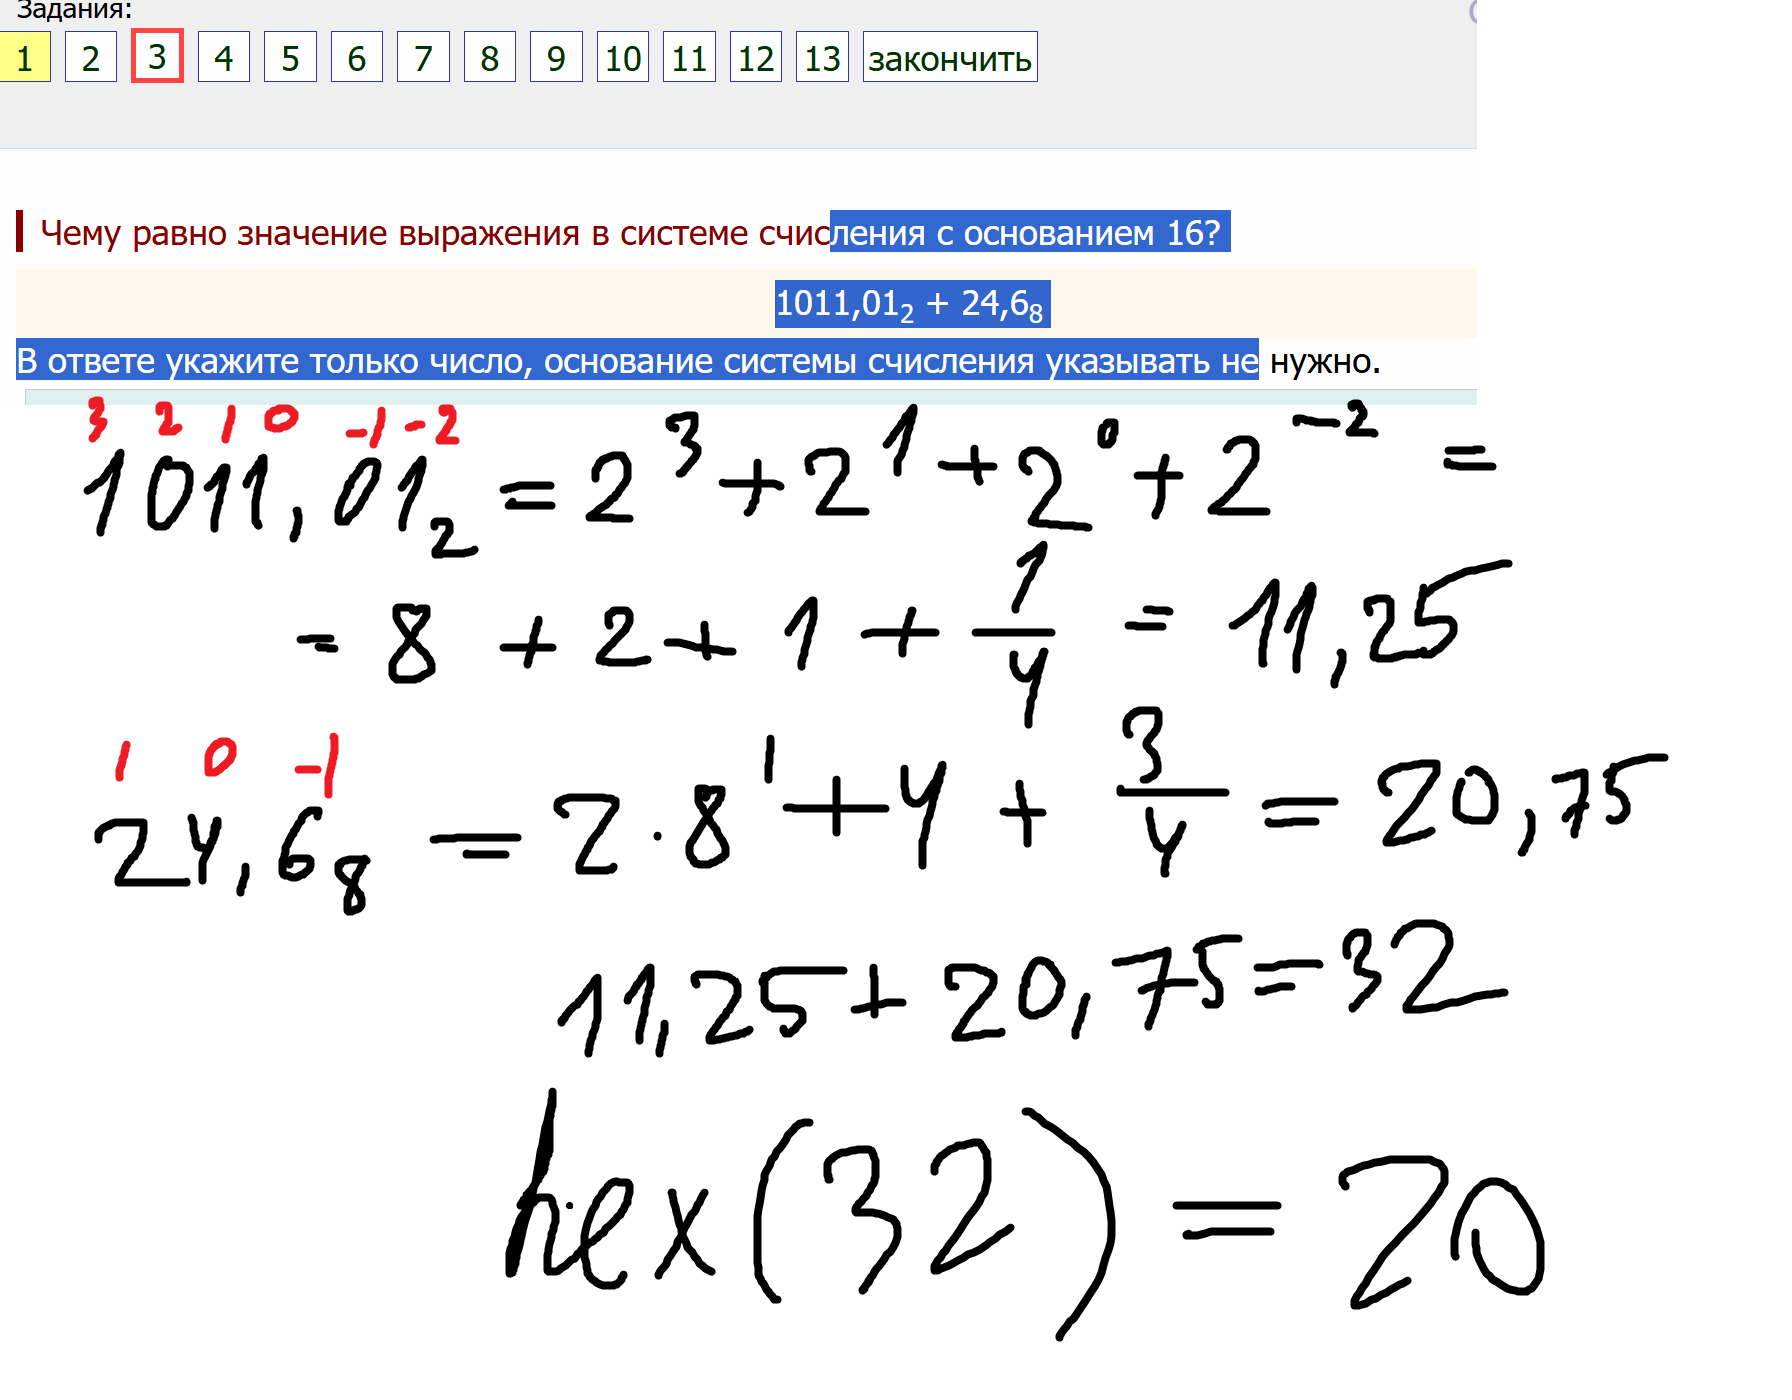 Задания:
1 2 3 4 5 6 7 8 9 10 11 12 13 закончить
Чему равно значение выражения в системе счисления с основанием 16?
1011,01₂ + 24,6₈
В ответе укажите только число, основание системы счисления указывать не нужно.
3 2 1 0 -1 -2
1011,01₂ = 2³ + 2¹ + 2⁰ + 2⁻² =
= 8 + 2 + 1 + 1/4 = 11,25
1 0 -1
24,6₈ = 2·8¹ + 4 + 3/4 = 20,75
11,25 + 20,75 = 32
hex(32) = 20